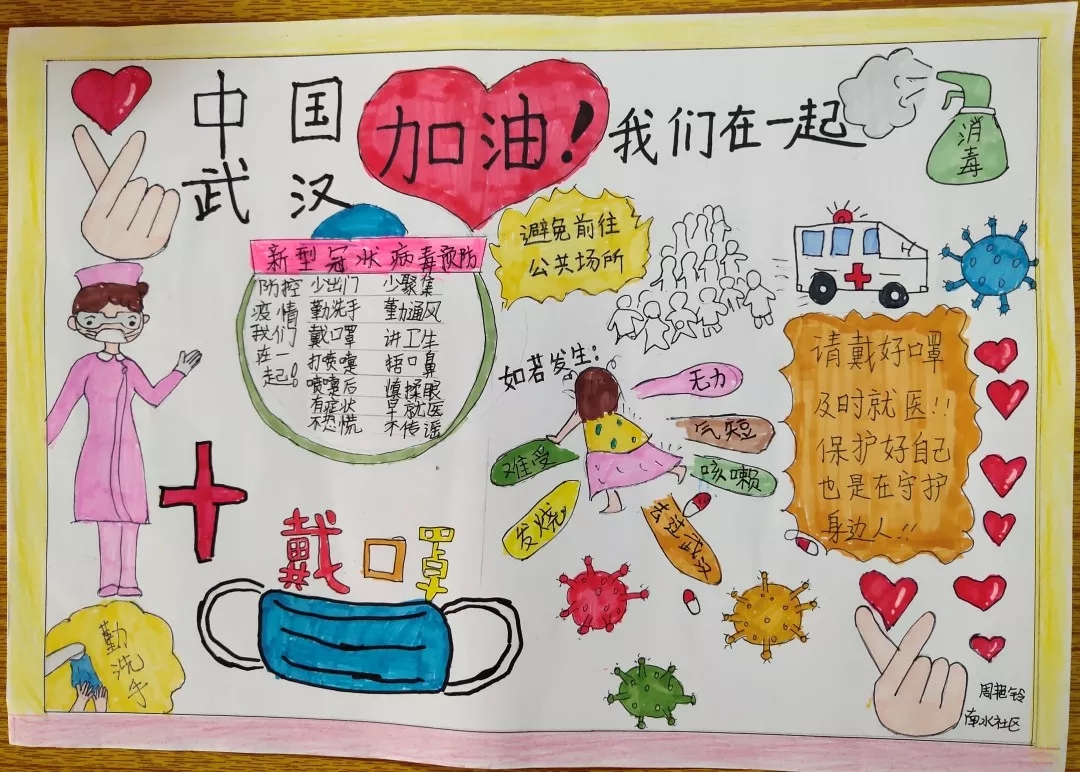 中国
加油！
我们在一起
武汉
消毒
新型冠状病毒预防
防控
疫情
我们
在一
起！
少出门 少聚集
勤洗手 勤通风
戴口罩 讲卫生
打喷嚏 捂口鼻
喷嚏后 慎揉眼
有症状 早就医
不恐慌 不传谣
避免前往
公共场所
如若发生：
无力
气短
咳嗽
难受
发烧
去过武汉
请戴好口罩
及时就医！！
保护好自己
也是在守护
身边人！！
戴口罩
勤洗手
周艳铃
南水社区